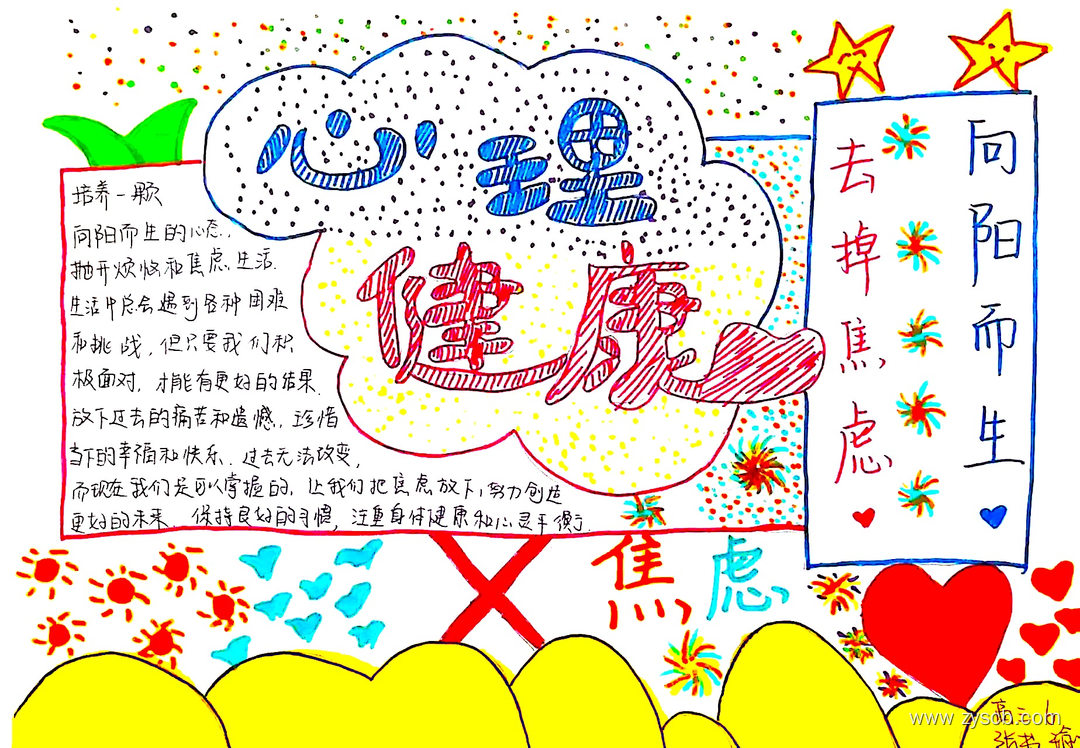 心理
健康
培养一颗
向阳而生的心态.
抛开烦恼和焦虑.生活.
生活中总会遇到各种困难
和挑战,但只要我们积
极面对.才能有更好的结果.
放下过去的痛苦和遗憾.珍惜
当下的幸福和快乐.过去无法改变,
而现在我们是可以掌握的.让我们把焦虑放下,努力创造
更好的未来.保持良好的习惯,注重身体健康和心灵平衡.
向阳而生
去掉焦虑
焦虑
高三6
张书瑜
www.zysob.com